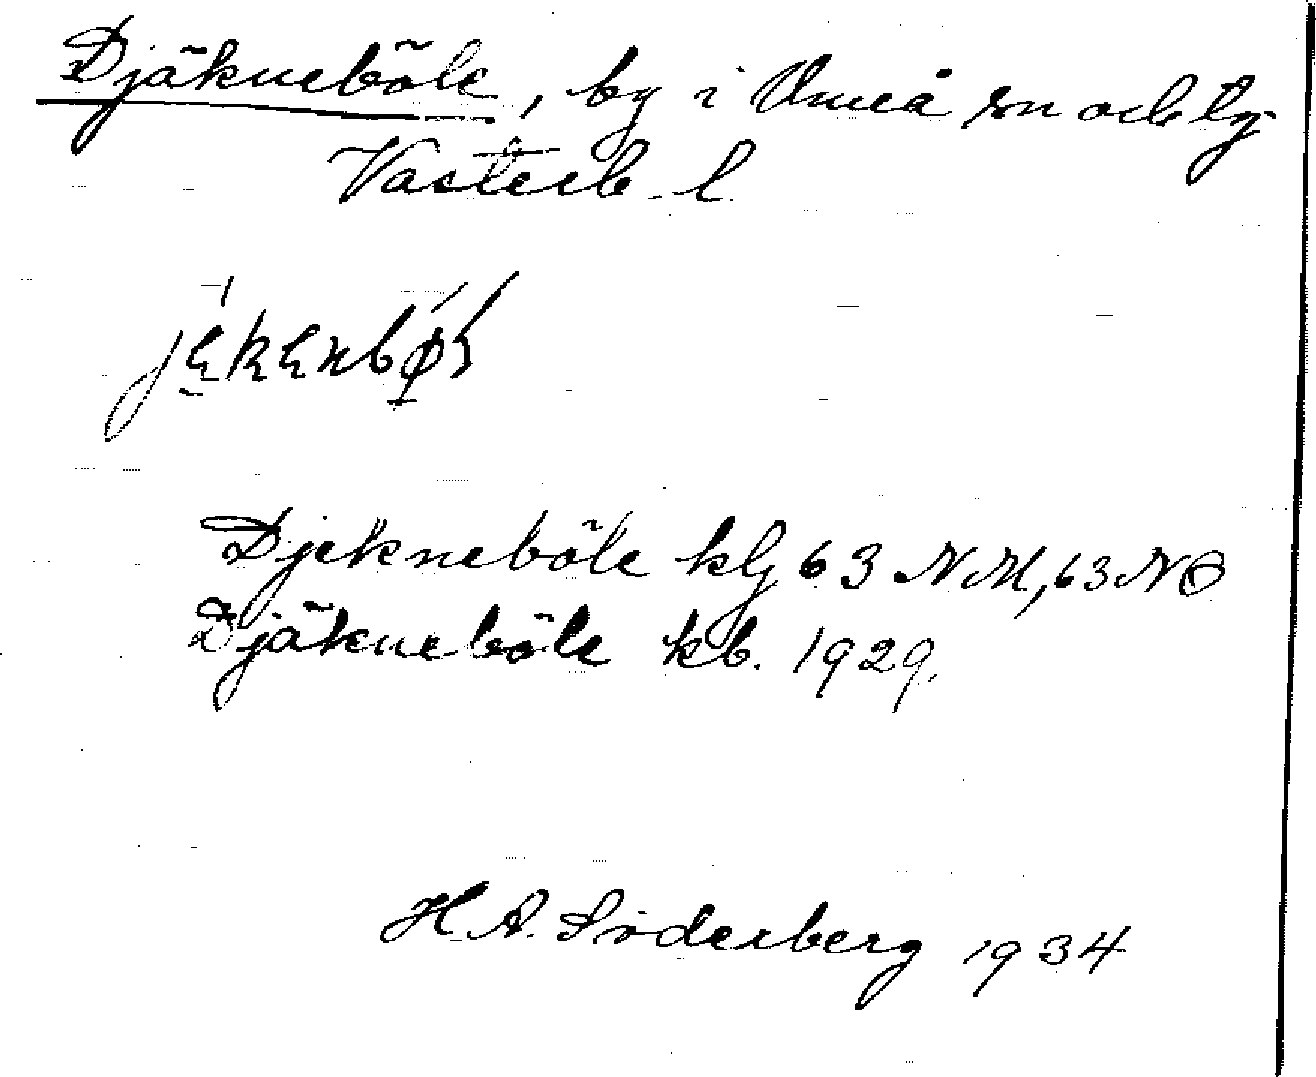 Djäkneböle, by i Umeå sn och tg
Västerb. l.
Djekneböle klg 63 NM, 63 NO
Djäkneböle kb. 1929.
H. A. Söderberg 1934